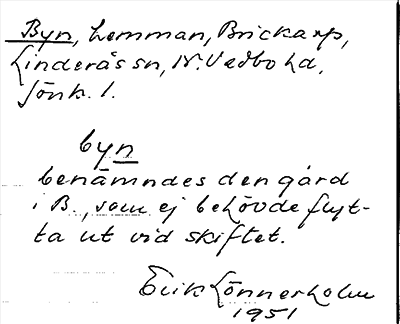 Byn, hemman, Brickarp,
Linderås sn, N. Vedbo hd,
Jönk. l.
byn
benämndes den gård
i B., som ej behövde flyt-
ta ut vid skiftet.
Erik Lönnerholm
1951